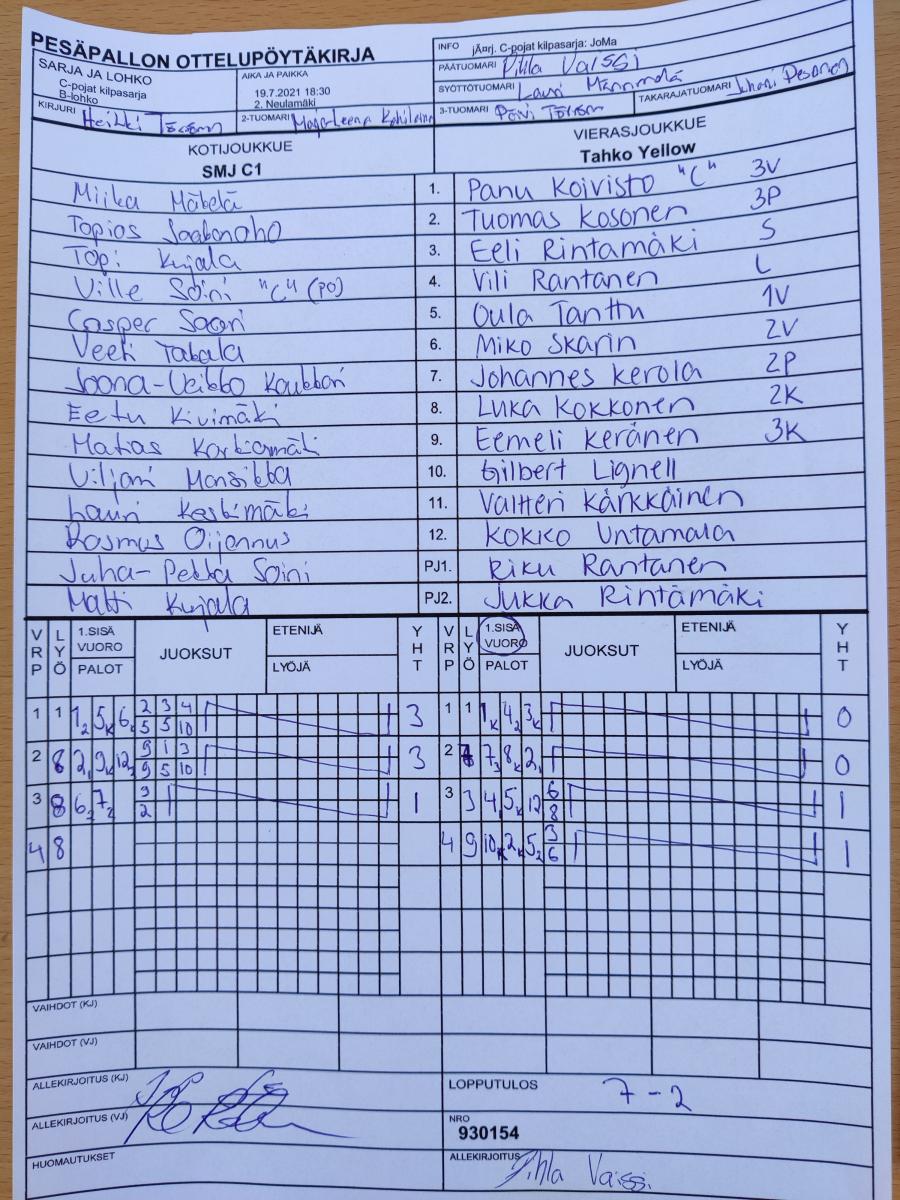 PESÄPALLON OTTELUPÖYTÄKIRJA
INFO jÄ¤rj. C-pojat kilpasarja: JoMa
SARJA JA LOHKO
C-pojat kilpasarja
B-lohko
AIKA JA PAIKKA
19.7.2021 18:30
2. Neulamäki
PÄÄTUOMARI Pihla Vaissi
SYÖTTÖTUOMARI Lauri Männimäki
KIRJURI Heikki Törrön
2-TUOMARI
3-TUOMARI Päivi Törrön
TAKARAJATUOMARI Juhani Pesonen
KOTIJOUKKUE
SMJ C1
VIERASJOUKKUE
Tahko Yellow
Miika Mäkelä 1. Panu Koivisto "C" 3V
Topias Saakonoho 2. Tuomas Kosonen 3P
Topi Kujala 3. Eeli Rintamäki S
Ville Soini "C" (PO) 4. Vili Rantanen L
Casper Saari 5. Oula Tanttu 1V
Veeti Takala 6. Miko Skarin 2V
Joona-Veikko Kaukkari 7. Johannes Kerola 2P
Eetu Kivimäki 8. Luka Kokkonen 2K
Matias Korkiamäki 9. Eemeli Keränen 3K
Viljami Mansikka 10. Gilbert Lignell
Lauri Keskimäki 11. Valtteri Kärkkäinen
Rasmus Oijennus 12. Kokko Untamala
Juha-Pekka Soini PJ1. Riku Rantanen
Matti Kujala PJ2. Jukka Rintämäki
VRP LYÖ 1.SISÄ VUORO PALOT JUOKSUT ETENIJÄ LYÖJÄ YHT VRP LYÖ 1.SISÄ VUORO PALOT JUOKSUT ETENIJÄ LYÖJÄ YHT
1 1 1₂ 5ₖ 6 2 3 4 3 1 1 1ₖ 4₂ 3ₖ 0
5 5 10
2 8 2 9ₖ 12 9 1 3 3 2 7₃ 8ₖ 2₁ 0
9 5 10
3 8 6₂ 7₂ 3 1 3 3 4 5ₖ 12 6 1
2 8
4 8 4 9 10ₖ 2ₖ 5₂ 3 1
6
VAIHDOT (KJ)
VAIHDOT (VJ)
ALLEKIRJOITUS (KJ)
LOPPUTULOS 7 - 2
ALLEKIRJOITUS (VJ)
NRO
930154
HUOMAUTUKSET
ALLEKIRJOITUS Pihla Vaissi